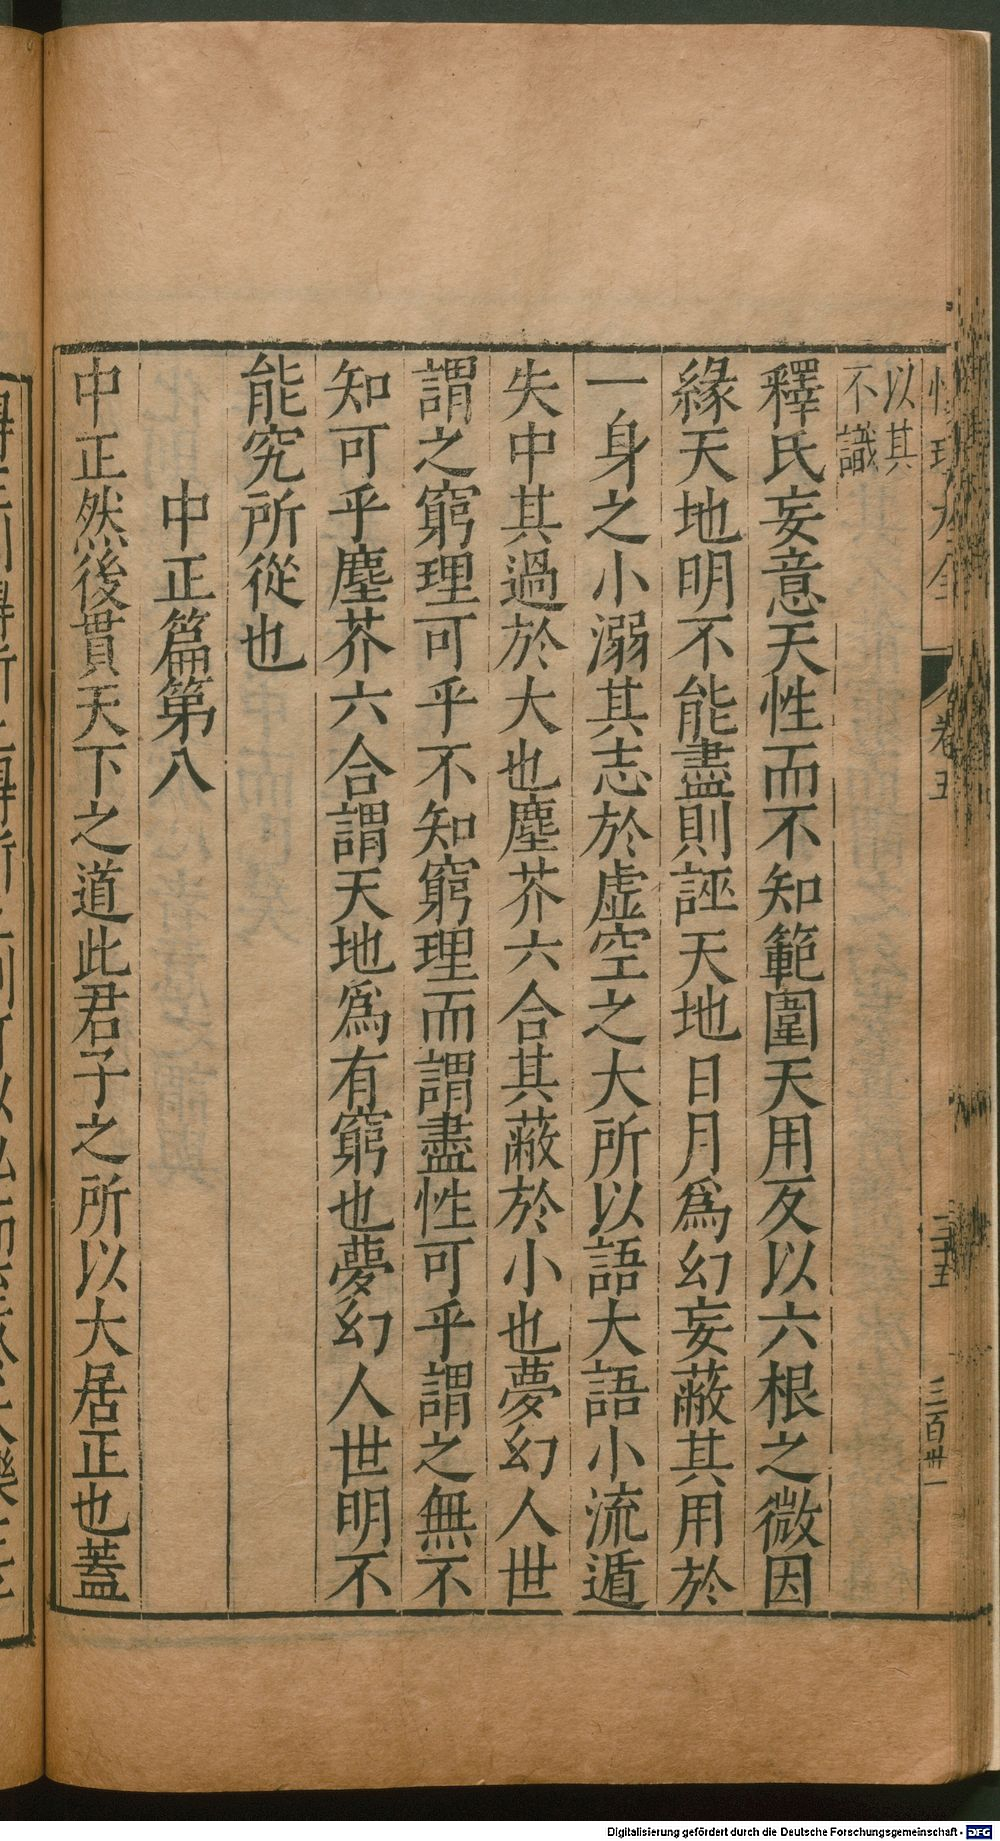 性理大全 卷五 三十五 三百卅一
以其
不識
釋氏妄意天性而不知範圍天用反以六根之微因
緣天地明不能盡則誣天地日月爲幻妄蔽其用於
一身之小溺其志於虚空之大所以語大語小流遁
失中其過於大也塵芥六合其蔽於小也夢幻人世
謂之窮理可乎不知窮理而謂盡性可乎謂之無不
知可乎塵芥六合謂天地爲有窮也夢幻人世明不
能究所從也
中正篇第八
中正然後貫天下之道此君子之所以大居正也蓋
Digitalisierung gefördert durch die Deutsche Forschungsgemeinschaft - DFG